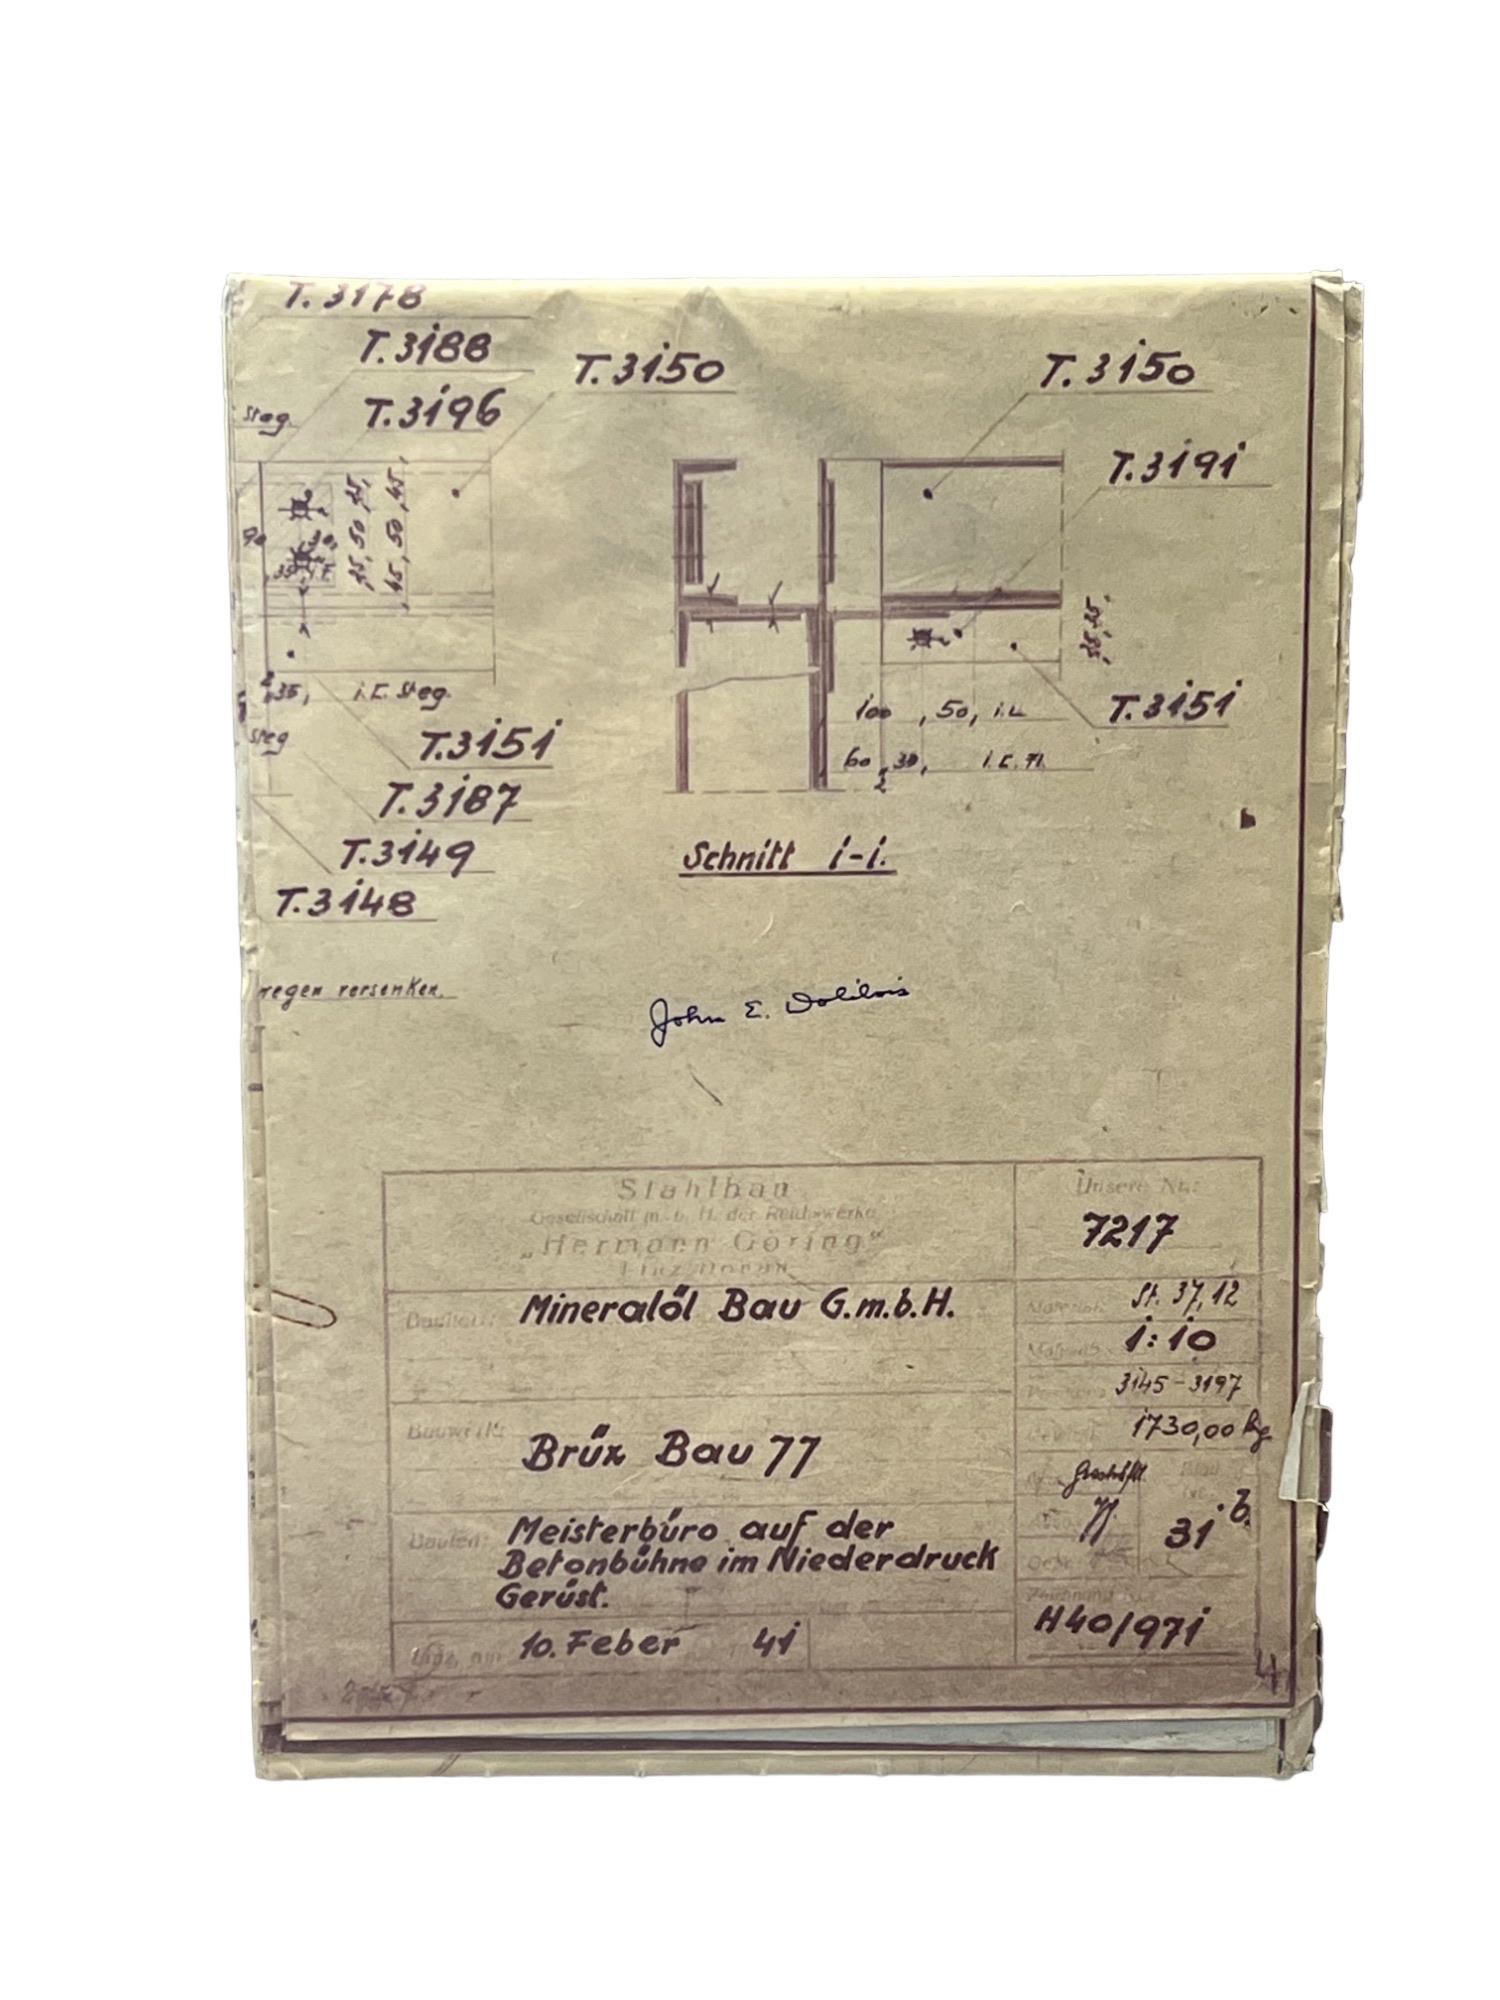 T. 3178
T. 3188
T. 3150
T. 3150
Steg
T. 3196
T. 3191
90
35, 50, 35,
45, 50, 45,
35,
35, i. C. Steg.
100, 50, i. L
T. 3151
Steg
T. 3151
60, 30, i. C. Fl.
2
T. 3187
T. 3149
Schnitt 1-1.
T. 3148
versenken.
John E. Dolibois
Stahlbau
Gesellschaft m. b. H. der Reichswerke
„Hermann Göring“
Linz Donau
Unsere Nr.:
7217
Bauherr: Mineralöl Bau G.m.b.H.
Material: St. 37, 12
Maßstab: 1:10
3145-3197
1730,00 kg
Bauwerk: Brüx Bau 77
Bauteil: Meisterbüro auf der
Betonbühne im Niederdruck
Gerüst.
31 b.
Zeichnung Nr.
H40/971
Linz, am 10. Feber 41